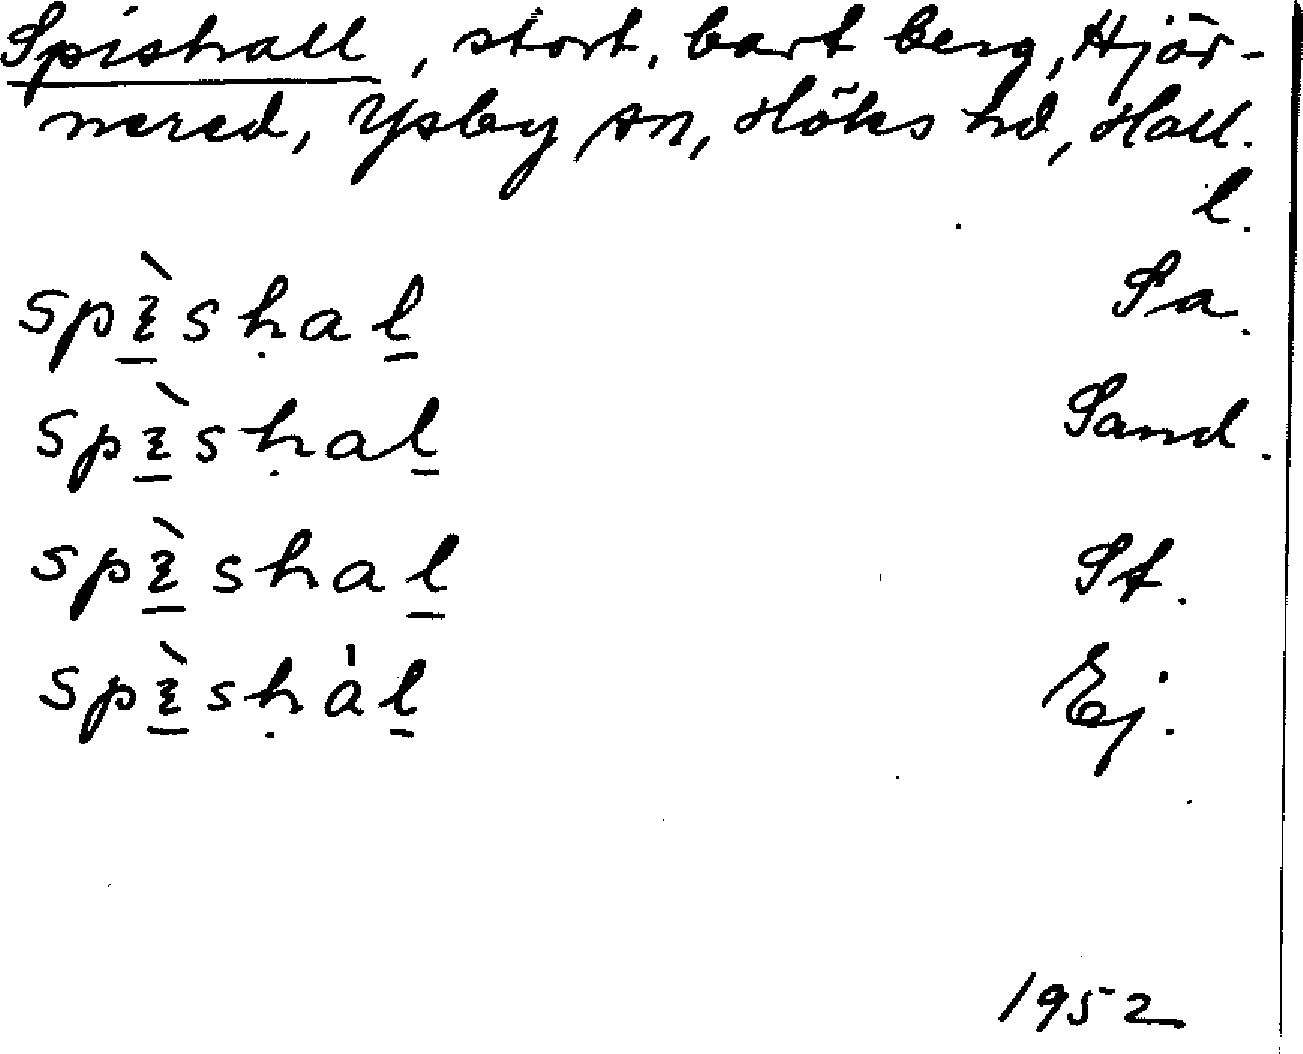 Spishall, stort, bart berg, Hjär-
nered, Ysby sn, Höks hd, Hall.
l.
spɛ̱̀sḥaḻ Sa.
spɛ̱̀sḥaḻ Sand.
spɛ̱̀shaḻ St.
spɛ̱̀sḥa̍ḻ Ej.
1952